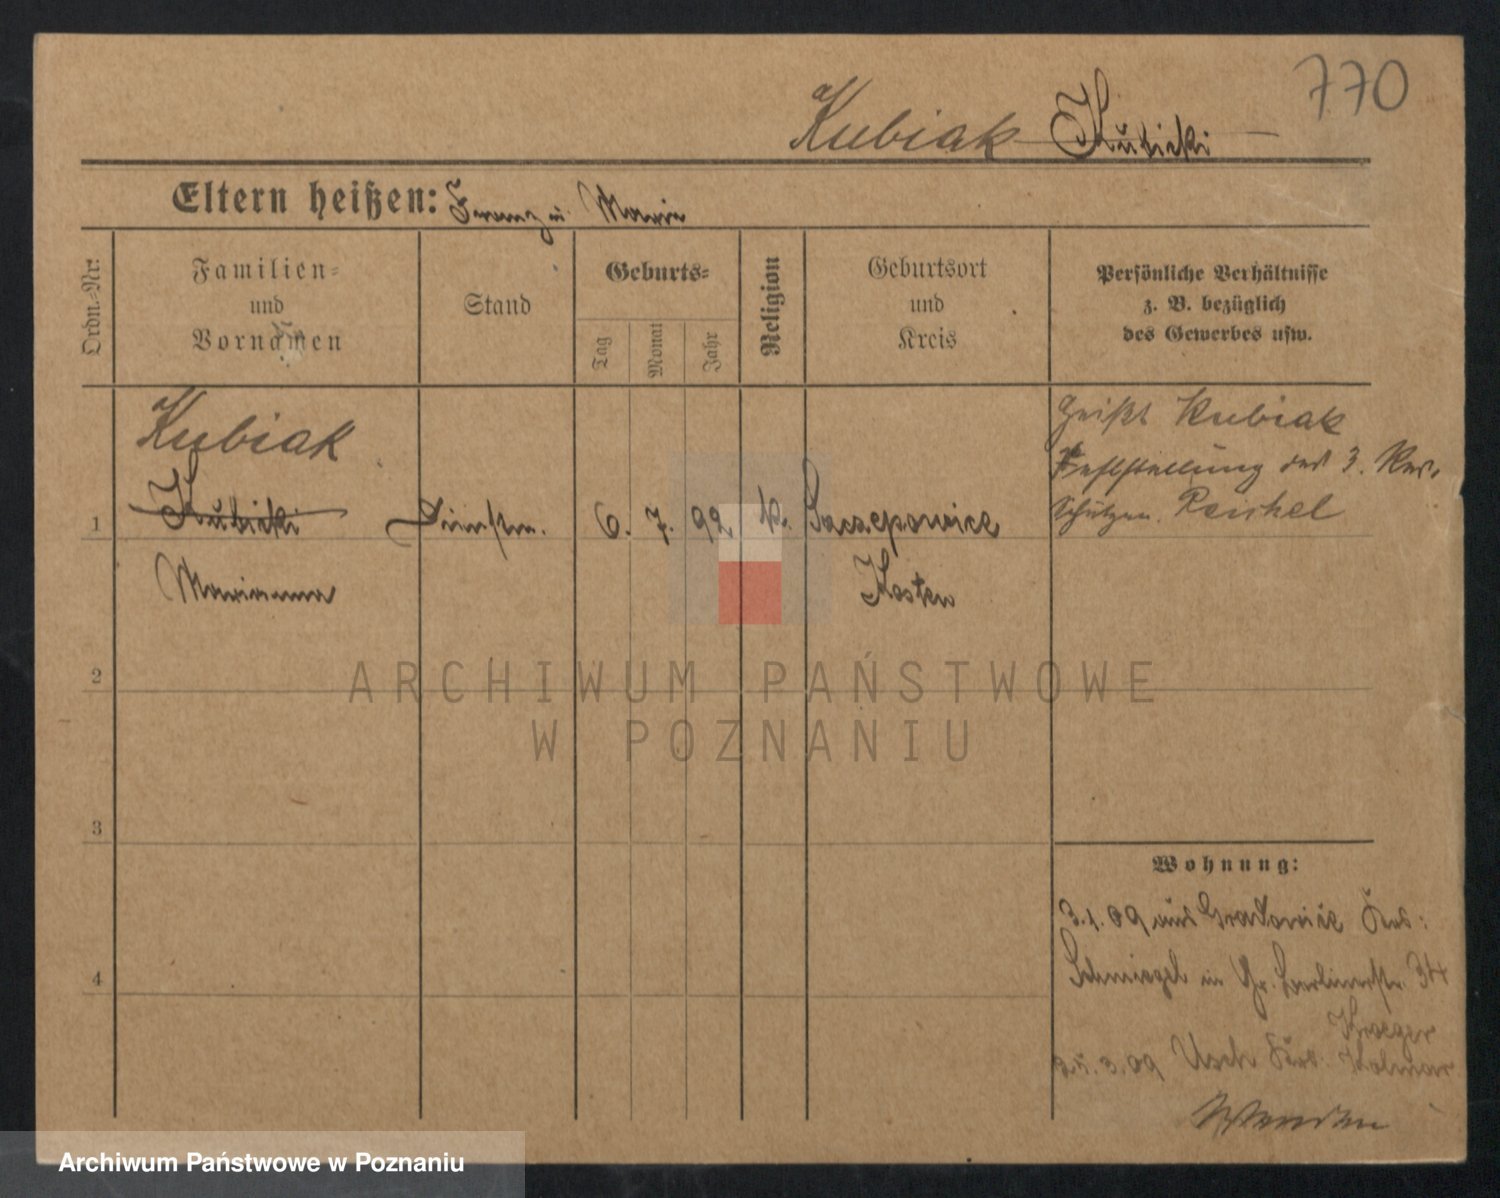 770
Kubiak Kubicki
Eltern heißen: Franz u. Marie
Ordn.=Nr.
Familien=
und
Vornamen
Stand
Geburts=
Tag
Monat
Jahr
Religion
Geburtsort
und
Kreis
Persönliche Verhältnisse
z. B. bezüglich
des Gewerbes usw.
Kubiak
heißt Kubiak
Feststellung des 3. Rev.
1 Kubicki 6. 7. 92 k. Szczepowice
Schutzm. Reichel
Marianna Kosten
2
3
4
Wohnung:
3.1.09 aus Gradowice Krs:
Schmiegel in Gr. Berlinerstr. 34
Kroeger
25.3.09 Usch Krs. Kolmar
ARCHIWUM PAŃSTWOWE
W POZNANIU
Archiwum Państwowe w Poznaniu